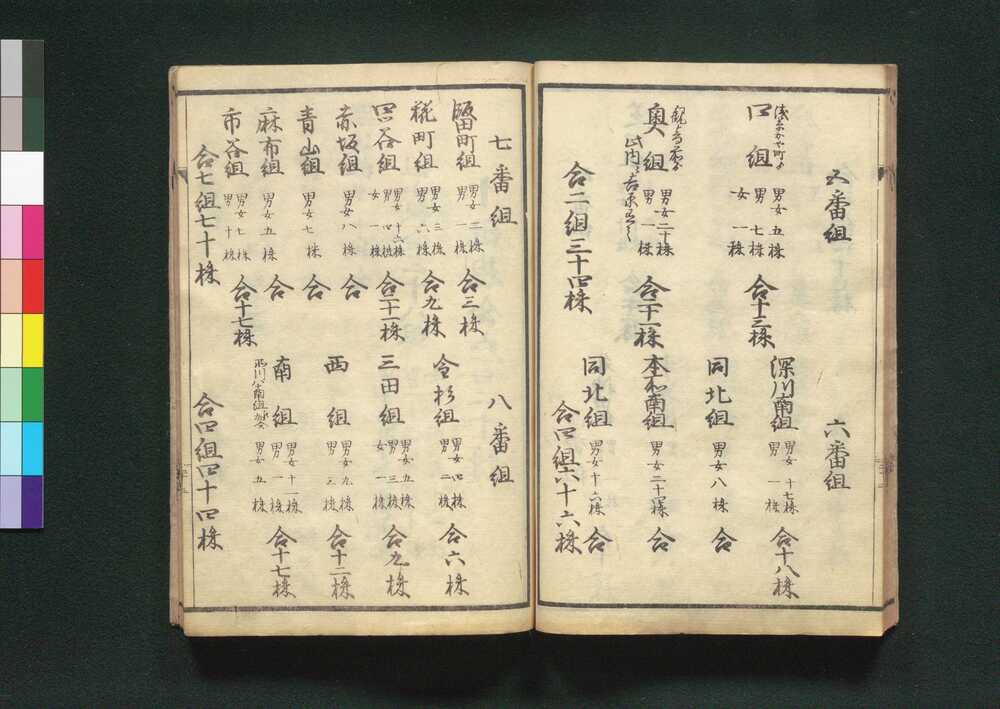 五番組
浅草かや町ゟ
口組 男女五株 男七株 女一株 合十三株
観音前ゟ
此内ニ吉原有之
奥組 男女二十株 男一株 合二十一株
合二組三十四株
六番組
深川南組 男女十七株 男一株 合十八株
同北組 男女八株 合
本所南組 男女二十四株 合
同北組 男女十六株 合
合四組六十六株
七番組
飯田町組 男女二株 男一株 合三株
糀町組 男女三株 男六株 合九株
四谷組 男女十六株 男四株 女一株 合二十一株
赤坂組 男女八株 合
青山組 男女七株 合
麻布組 男女五株 合
市谷組 男女七株 男十株 合十七株
合七組七十株
八番組
今杉組 男女四株 男二株 合六株
三田組 男女五株 男三株 女一株 合九株
西組 男女九株 男三株 合十二株
南組 男女十一株 男一株 男女五株 合十七株
合四組四十四株